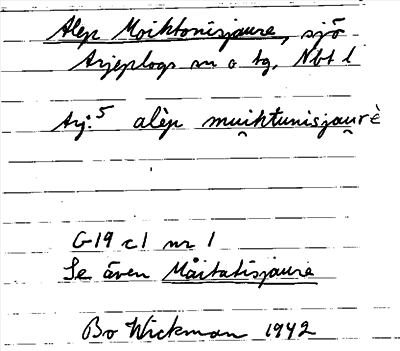 Alep Moiktonisjaure, sjö
Arjeplogs sn o tg, Nbt l
Arj:⁵ alèp mu̯iktunisjau̯rè
G19 c1 nr 1
Se även Måitatisjaure
Bo Wickman 1942